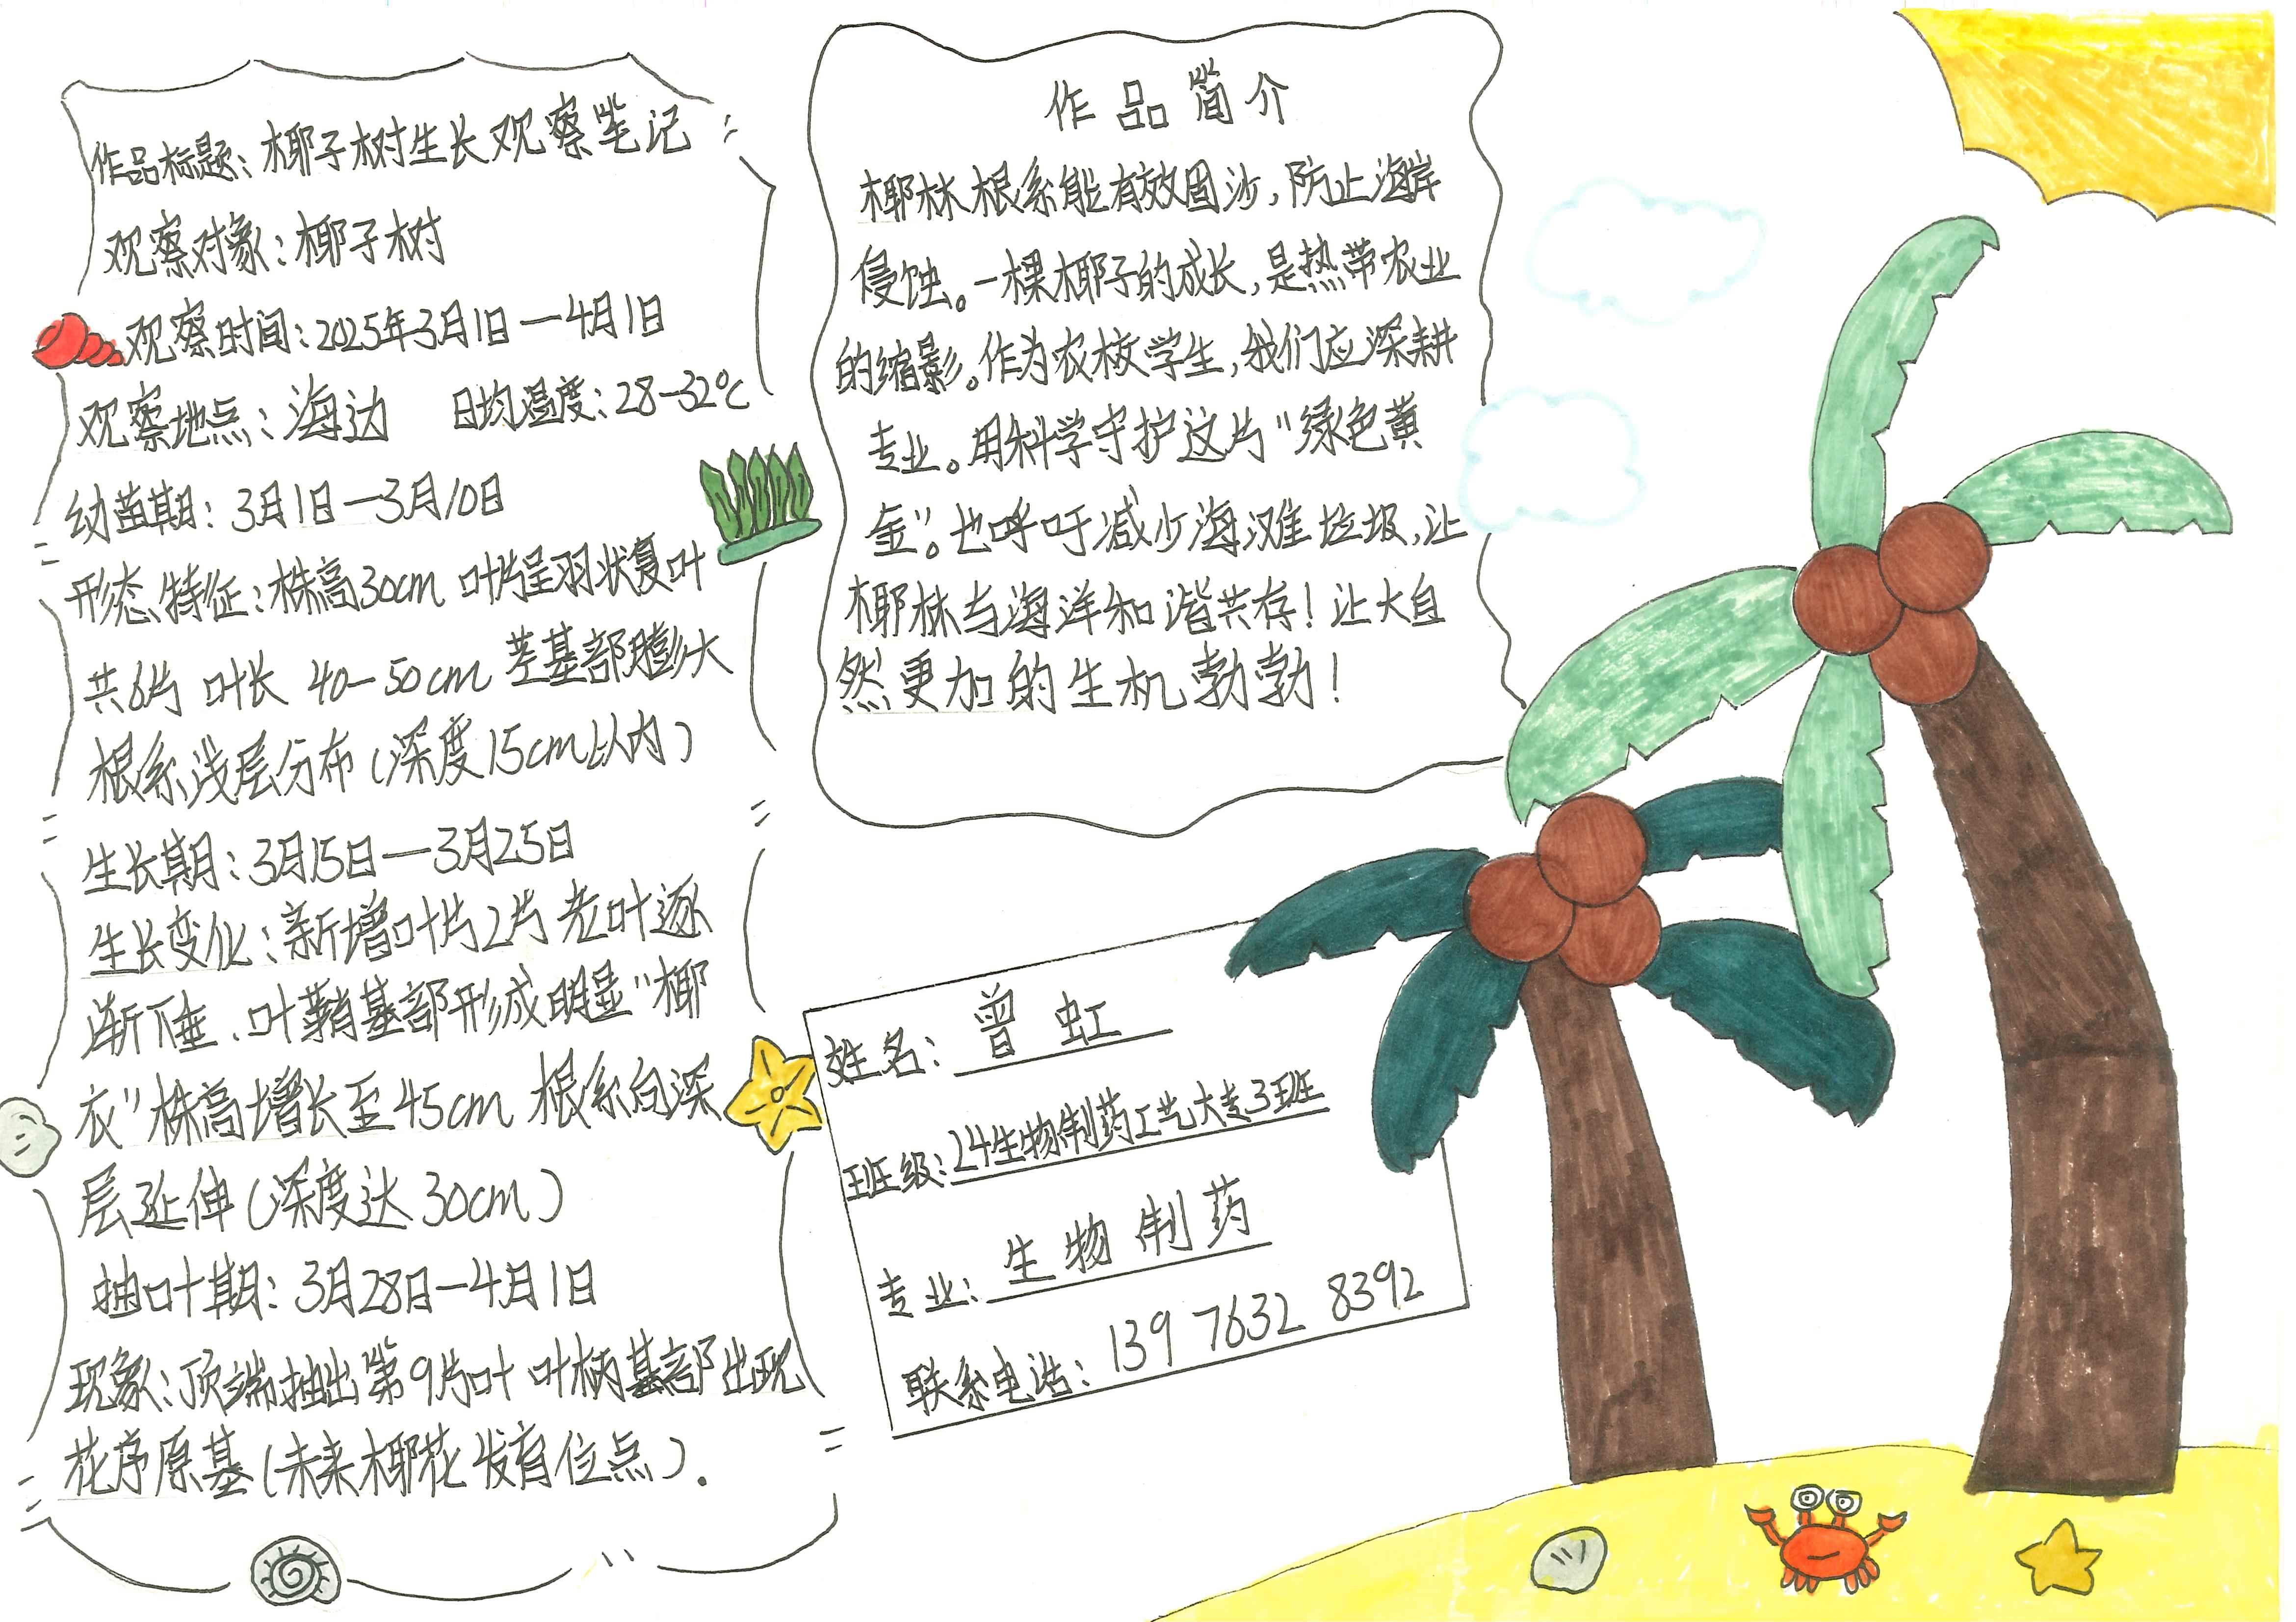 作品标题：椰子树生长观察笔记
观察对象：椰子树
观察时间：2025年3月1日—4月1日
观察地点：海边 日均温度：28-32℃
幼苗期：3月1日—3月10日
形态特征：株高30cm 叶片呈羽状复叶
共6片 叶长 40-50cm 茎基部膨大
根系浅层分布（深度15cm以内）
生长期：3月15日—3月25日
生长变化：新增叶片2片 老叶逐
渐下垂、叶鞘基部形成明显"椰
衣"株高增长至45cm 根系向深
层延伸（深度达30cm）
抽叶期：3月28日—4月1日
现象：顶端抽出第9片叶 叶柄基部出现
花序原基（未来椰花发育位点）.
作品简介
椰林根系能有效固沙，防止海岸
侵蚀。一棵椰子的成长，是热带农业
的缩影。作为农校学生，我们应深耕
专业。用科学守护这片"绿色黄
金"。也呼吁减少海滩垃圾，让
椰林与海洋和谐共存！让大自
然更加的生机勃勃！
姓名：曾虹
班级：24生物制药工艺大专3班
专业：生物制药
联系电话：139 7632 8392